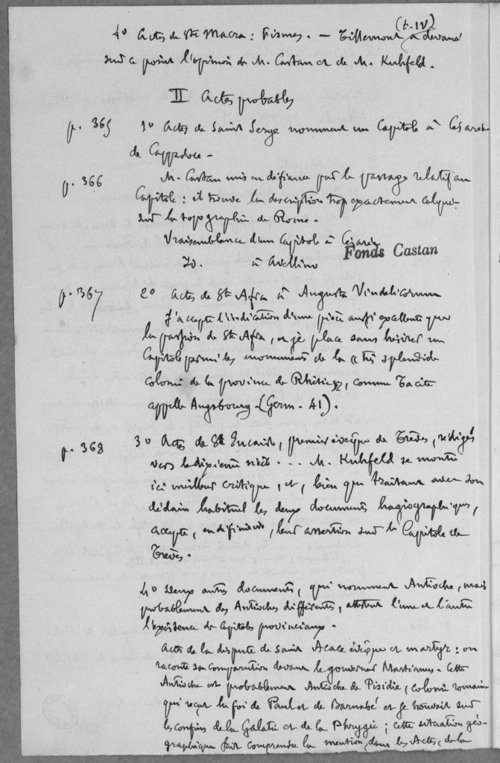 (t. IV)
4o Actes de Ste Macra : Fismes. – Tillemont a devancé
sur ce point l'opinion de M. Castan et de M. Kuhfeld.
II Actes probables
p. 365 1o Actes de Saint Serge nomment un Capitole à Césarée
de Cappadoce –
p. 366 M. Castan mis en défiance par le passage relatif au
Capitole : il trouve la description trop exactement calquée
sur la topographie de Rome –
Vraisemblance d'un Capitole à Césarée
Fonds Castan
Id. à Avellino
p. 367 2o Actes de St Afra à Augusta Vindelicorum
J'accepte l'indication d'une pièce aussi excellente que
la passion de St Afra, et je place sans hésiter un
Capitole parmi les monuments de la « très splendide
colonie de la province de Rhétie », comme Tacite
appelle Augsbourg – (Germ. 41).
p. 368 3o Actes de St Eucaire, premier évêque de Trèves, rédigés
vers le dixième siècle . . . M. Kuhfeld se montre
ici meilleur critique, et, bien que traitant avec son
dédain habituel les deux documents hagiographiques,
accepte, en définitive, leur assertion sur le Capitole de
Trèves.
4o Deux autres documents, qui nomment Antioche, mais
probablement des Antioches différentes, attestent l'une et l'autre
l'existence de Capitoles provinciaux.
Actes de la dispute de Saint Acace évêque et martyr : on
raconte sa comparution devant le gouverneur Martianus. Cette
Antioche est probablement Antioche de Pisidie, colonie romaine
qui reçut la foi de Paul et de Barnabé et se trouvait sur
les confins de la Galatie et de la Phrygie ; cette situation géo-
graphique fait comprendre la mention, dans les Actes, de la